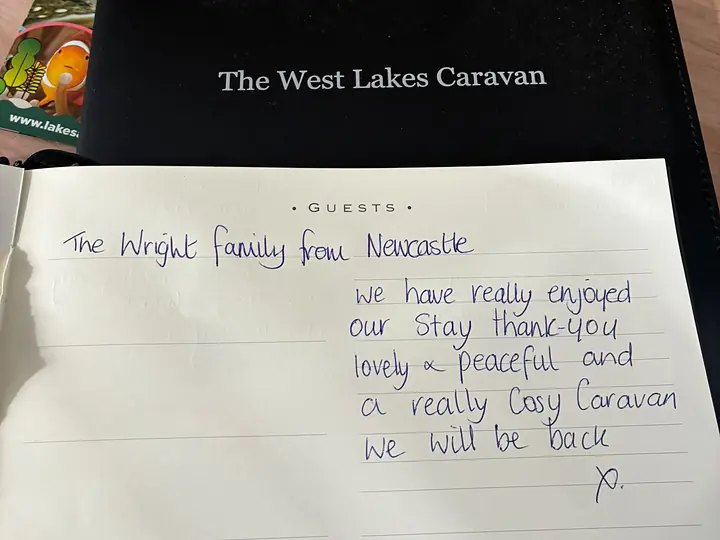 www.lakes
The West Lakes Caravan
• GUESTS •
The Wright family from Newcastle
We have really enjoyed
our Stay thank-you
lovely & peaceful and
a really Cosy Caravan
We will be back
X.